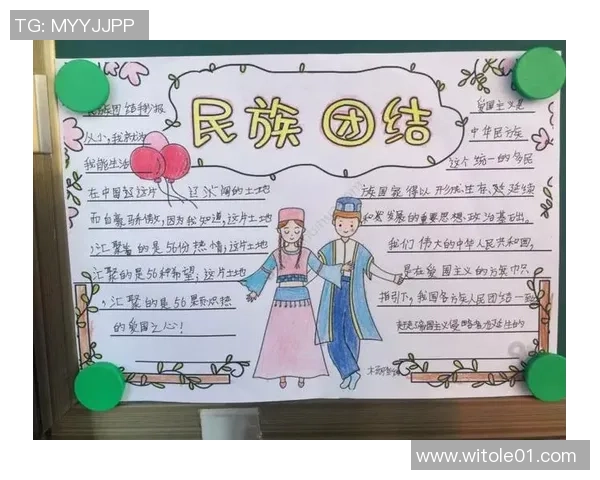 TG: MYYJJPP
民族 团结
从小,我就为
我能生活
在中国这片辽阔的土地
而自豪骄傲,因为我知道,这片土地
汇聚着的是56份热情,这片土地
汇聚的是56种希望,这片土地
,汇聚的是56
的爱国之心!
爱国主义是
中华民族
这个统一的多民
族国家得以形成、生存、
发展的重要思想、政治基础。
我们伟大的中华人民共和国,
是在爱国主义的旗帜
指引下,我国各族人民团结一致
www.witole01.com